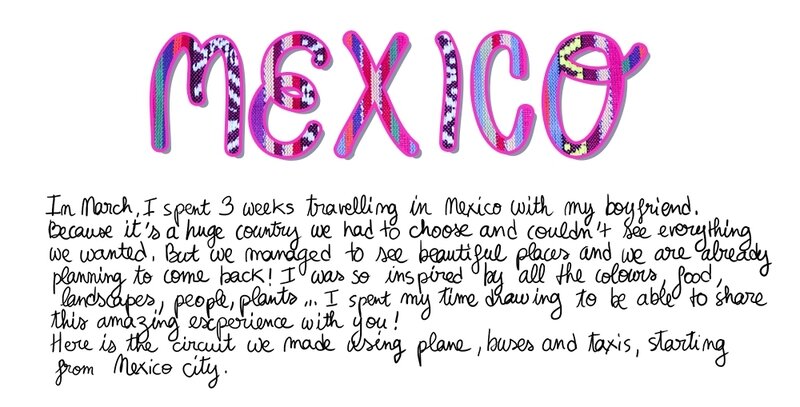 MEXICO
In March, I spent 3 weeks travelling in Mexico with my boyfriend.
Because it's a huge country we had to choose and couldn't see everything
we wanted. But we managed to see beautiful places and we are already
planning to come back! I was so inspired by all the colours, food,
landscapes, people, plants... I spent my time drawing to be able to share
this amazing experience with you!
Here is the circuit we made using plane, buses and taxis, starting
from Mexico city.